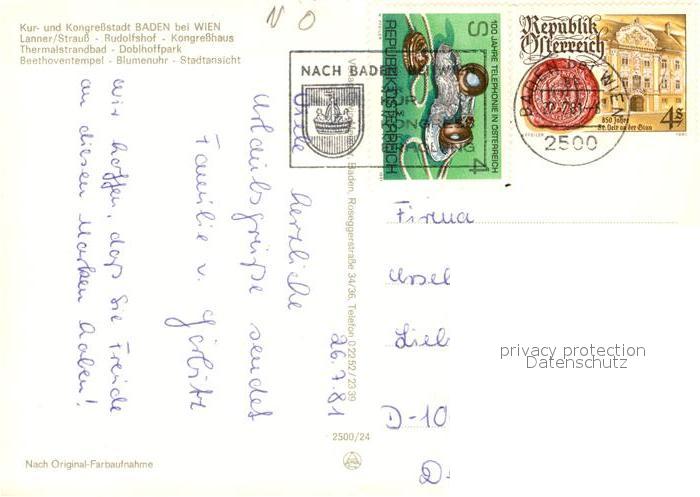 Kur- und Kongreßstadt BADEN bei WIEN
Lanner/Strauß - Rudolfshof - Kongreßhaus
Thermalstrandbad - Doblhoffpark
Beethoventempel - Blumenuhr - Stadtansicht
N O
NACH BADEN BEI WIEN
KUR
ERHOLUNG
100 JAHRE TELEPHONIE IN ÖSTERREICH
REPUBLIK ÖSTERREICH
S 4
Republik
Österreich
850 Jahre
St. Veit an der Glan
4 S
BADEN bei WIEN
2500
Viele herzliche
Urlaubsgrüße sendet
Familie v.
26.7.81
Wir hoffen, daß Sie Freude
an diesen Marken haben!
Baden, Roseggerstraße 34/36, Telefon 0 22 52 / 23 39
Firma
Ursel
Lieb
D-10
D-
privacy protection
Datenschutz
2500/24
Nach Original-Farbaufnahme